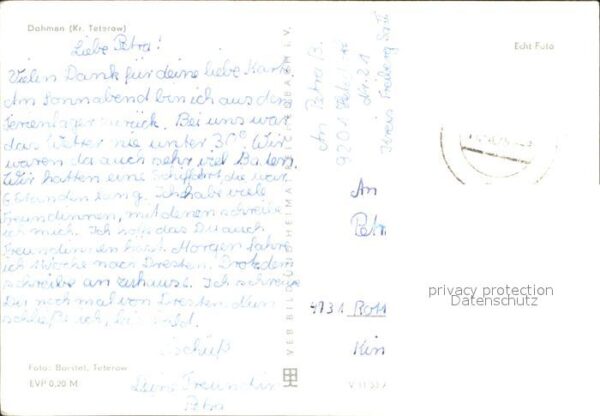 Dahmen (Kr. Teterow)
Liebe Petra!
Vielen Dank für deine liebe Karte
Am Sonnabend bin ich aus dem
Ferienlager zurück. Bei uns war
das Wetter nie unter 30°. Wir
waren da auch sehr viel Baden.
Wir hatten eine Schiffahrt die war
6 Stunden lang. Ich habe viele
Freundinnen, mit denen schreibe
ich mich. Ich hoffe das Du auch
Freundinnen hast. Morgen fahre
ich 1 Woche nach Dresten. Trotzdem
schreibe an zuhause. Ich schreibe
Dir noch mal von Dresten. Nun
schließ ich, bis bald.
Tschüß
Deine Freundin
Petra
Foto: Barstel, Teterow
EVP 0,20 M
VEB BILD UND HEIMAT REICHENBACH I. V.
V 11 53
Echt Foto
An Petra B.
9201
Nr. 21
Kreis Freiberg Sa
An
Petr
Kin
privacy protection
Datenschutz